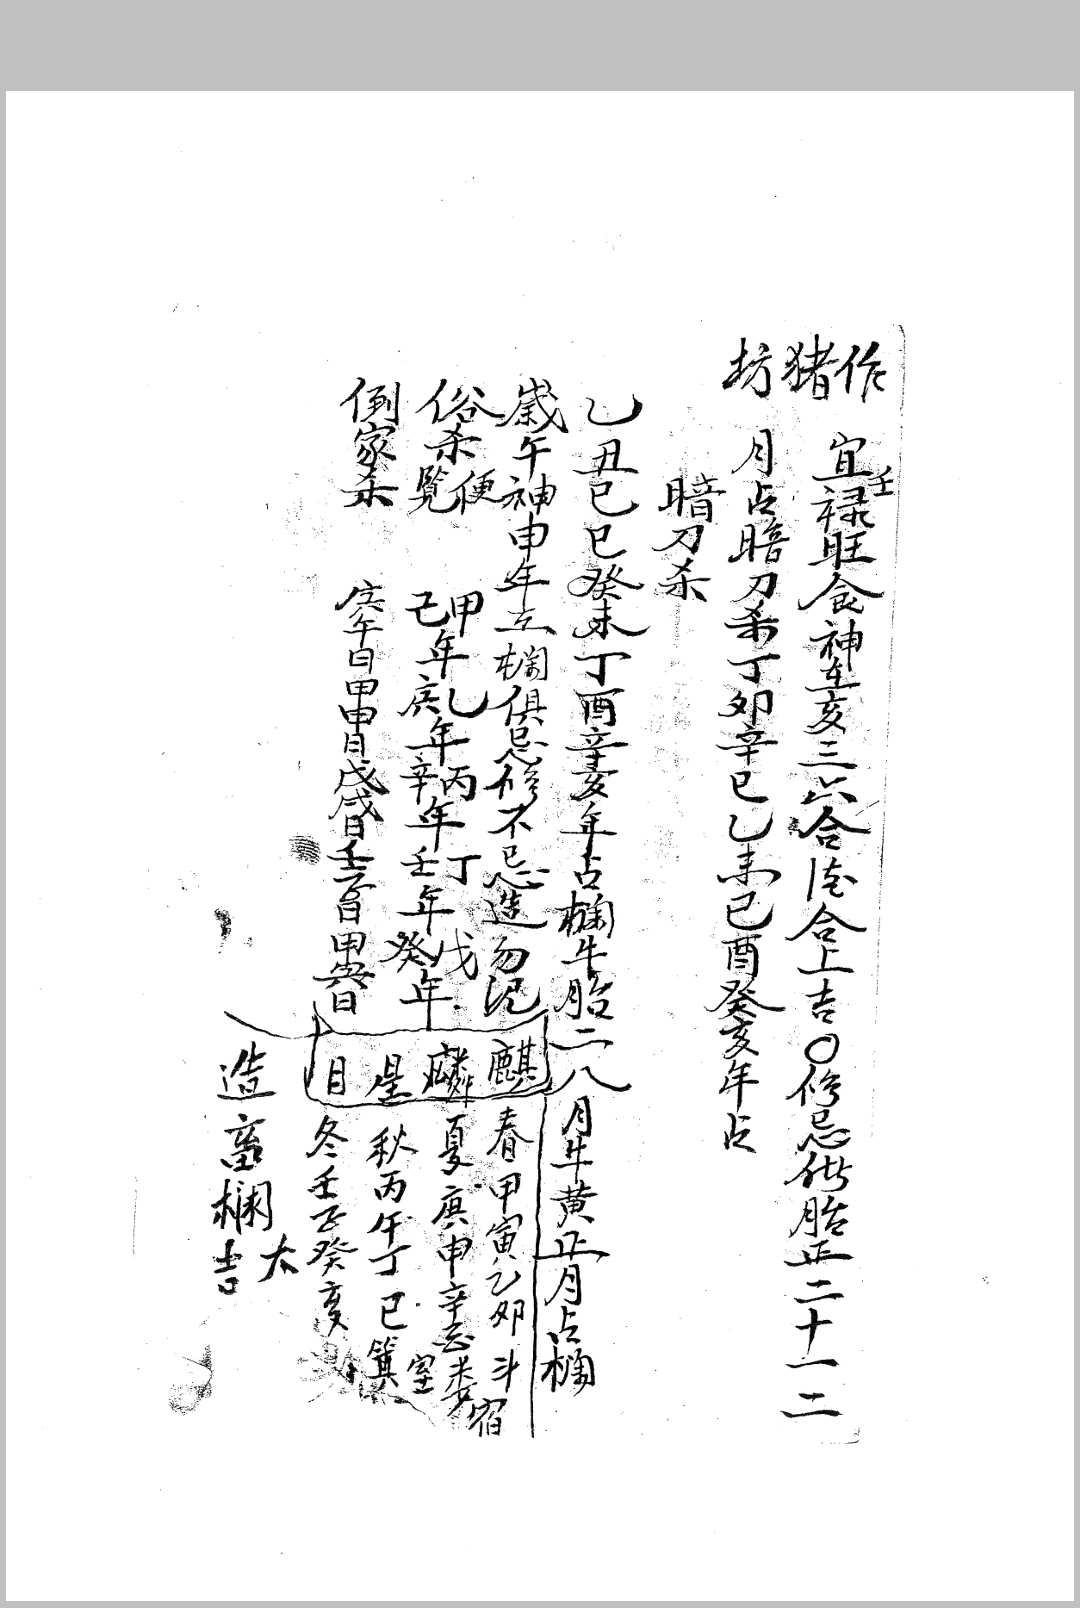 作猪坊
宜壬禄旺食神在亥三六合德合上吉〇修忌猪胎正二十一二
月占暗刀杀丁卯辛巳乙未己酉癸亥年占
暗刀杀
乙丑己巳癸未丁酉辛亥年占橺牛胎二八月牛黄正月占橺
歲午神申年立橺俱忌修不忌造勿泥
俗杀便覧
甲己年乙庚年丙辛年丁壬年戊癸年
例家杀
庚午日甲申日戊戌日壬子日甲寅日
麒麟星日
春甲寅乙卯斗宿
夏庚申辛酉娄
秋丙午丁巳箕室
冬壬子癸亥
造畜欄大吉